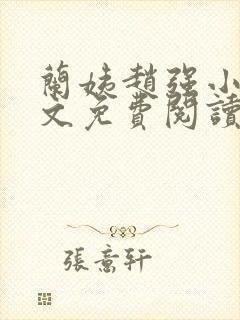 蘭姨趙强小
文免費閱讀
張意轩